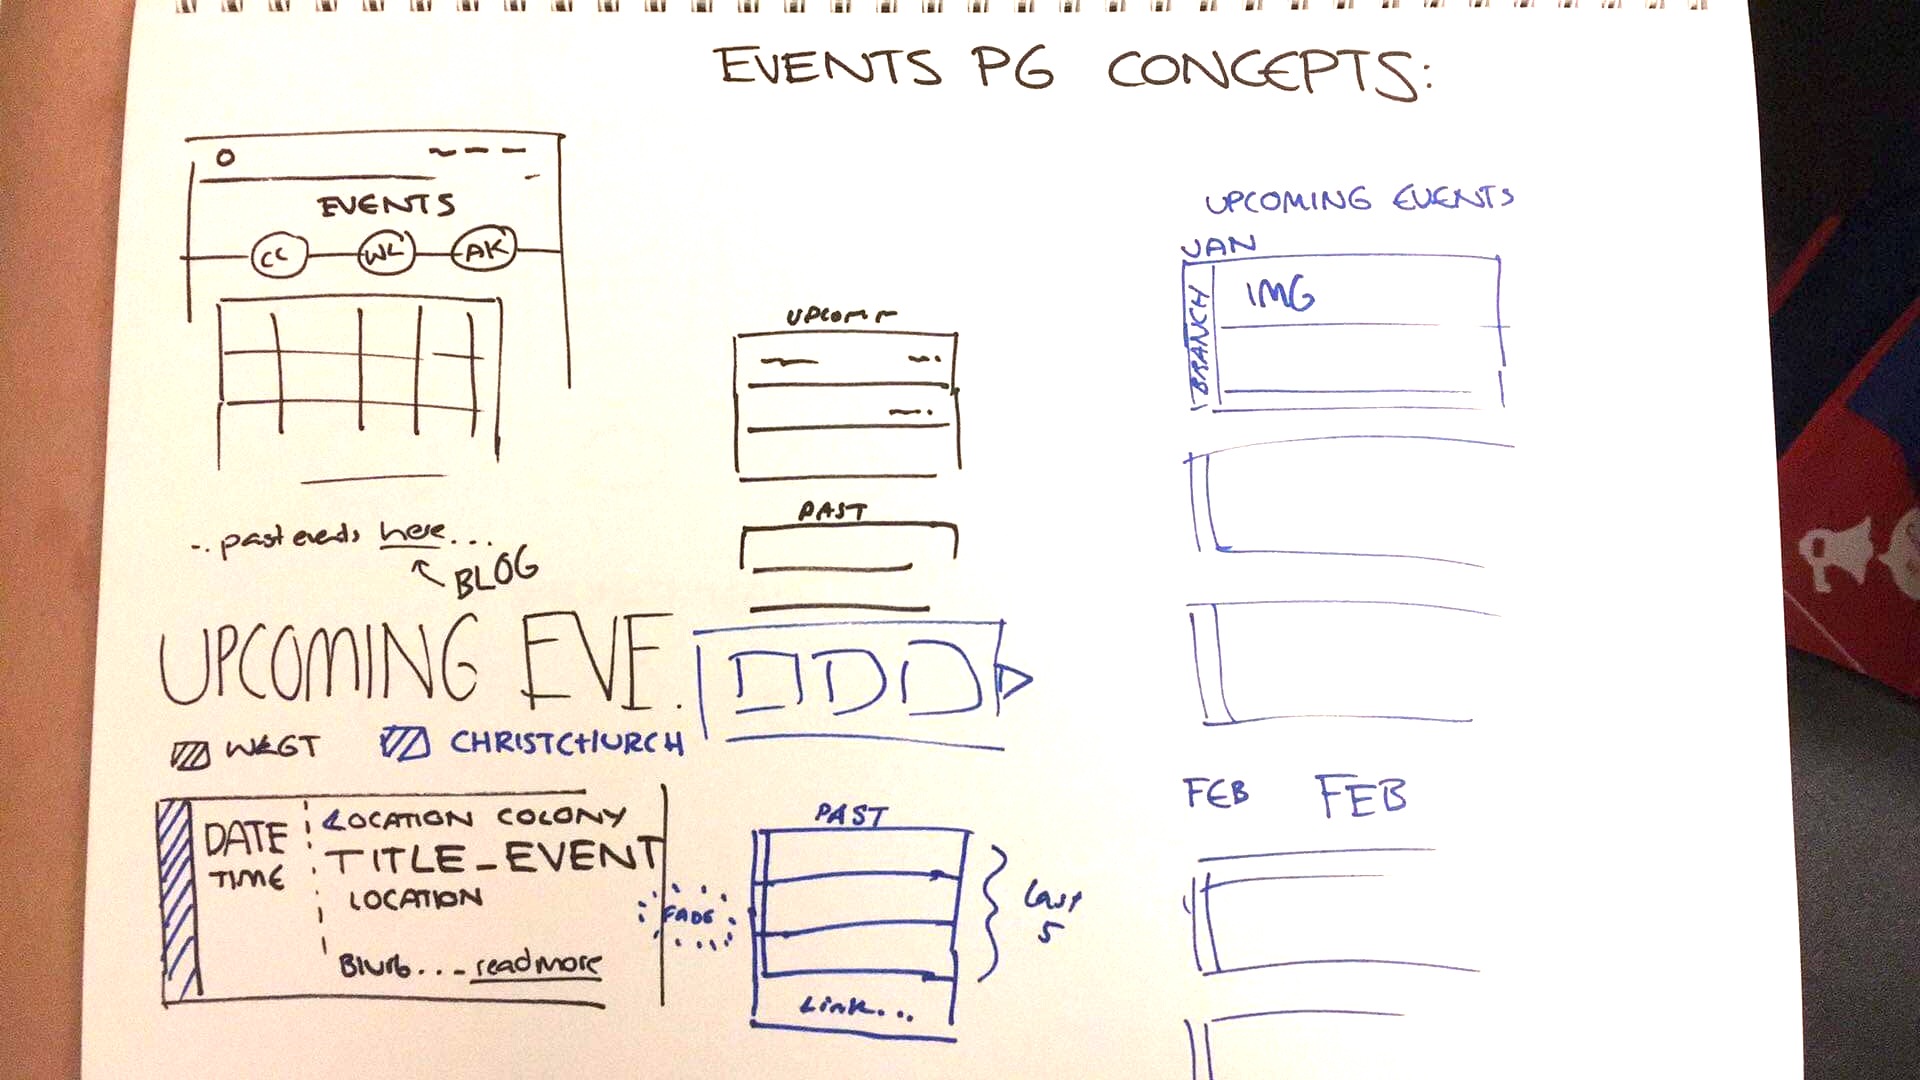 EVENTS PG CONCEPTS:
EVENTS
CC WL AK
-. past events here...
BLOG
UPCOMING EVE.
WLGT
CHRISTCHURCH
DATE
TIME
LOCATION COLONY
TITLE_EVENT
LOCATION
Blurb... - readmore
FADE
UPCOM
PAST
PAST
Last
5
Link...
UPCOMING EVENTS
JAN
BRANCH
IMG
FEB FEB